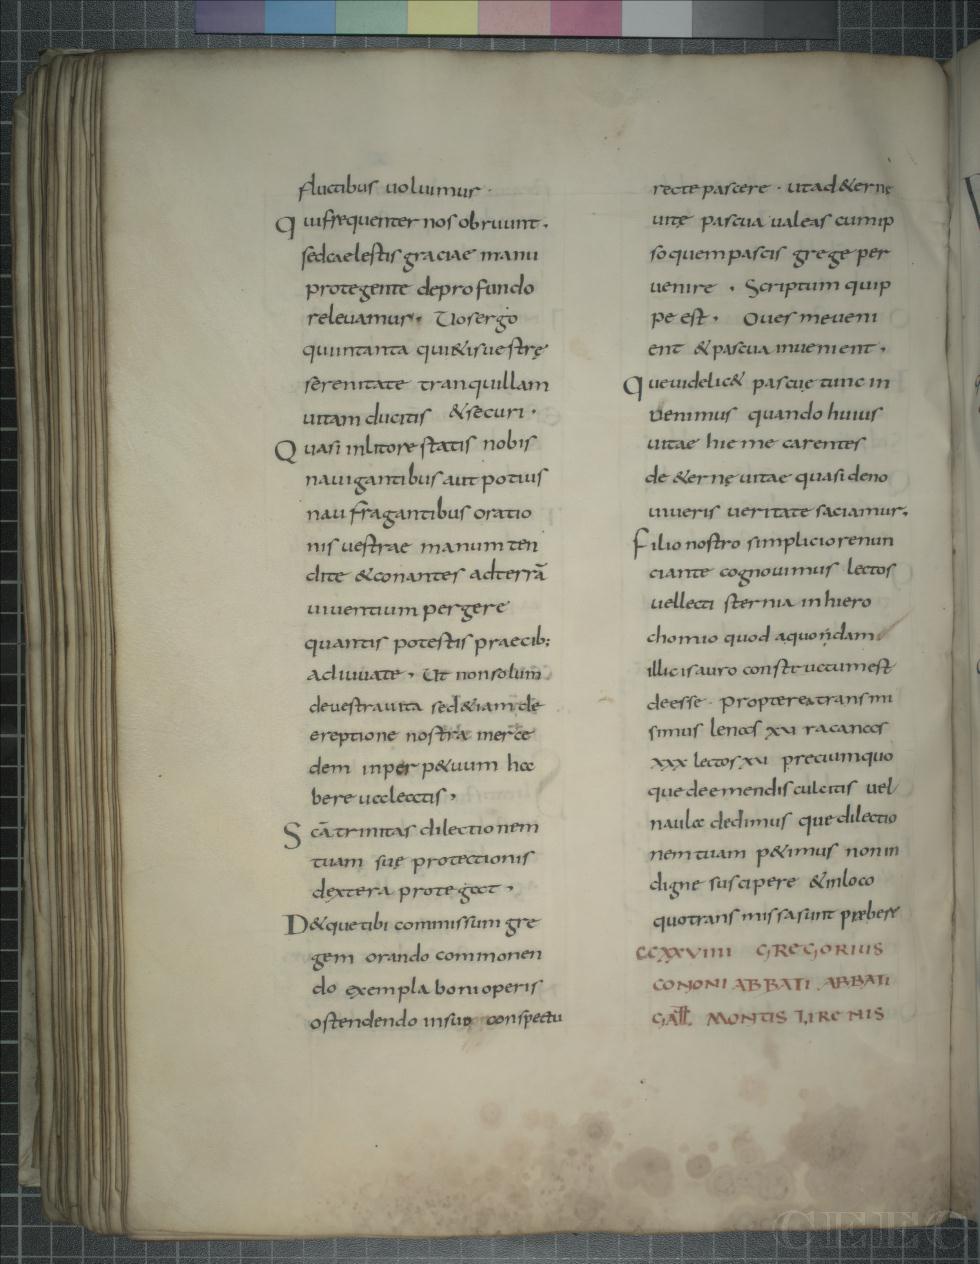 fluctibus uoluimur ·
Qui frequenter nos obruunt ·
sed caelestis graciae manu
protegente de profundo
releuamur · Uos ergo
qui in tanta qui&is uestrę
serenitate tranquillam
uitam ducitis & securi ·
Quasi in litore statis nobis
nauigantibus aut potius
naufragantibus oratio
nis uestrae manum ten
dite & conantes ad terrā
uiuentium pergere
quantis potestis praecib;
adiuuate · Ut non solum
de uestra uita sed &iam de
ereptione nostra merce
dem in perp&uum ha
bere ualeatis ·
Scā trinitas dilectionem
tuam suę protectionis
dextera protegat ·
D&que tibi commissum gre
gem orando commonen
do exempla boni operis
ostendendo in suo conspectu
recte pascere · ut ad &erne
uitę pascua ualeas cum ip
so quem pascis grege per
uenire · Scriptum quip
pe est · Oues me ueni
ent & pascua inuenient ·
Que uidelic& pascuę tunc in
uenimus quando huius
uitae hieme carentes
de &ernę uitae quasi de no
ui ueris ueritate saciamur ·
Filio nostro simplicio renun
ciante cognouimus lectos
uel lecti sternia in hiero
chomio quod a quondam
illic isauro constructum est
deesse · Propterea transmi
simus lenas xv racanas
xxx lectos xv precium quo
que de emendis culcitis uel
naula dedimus que dilectio
nem tuam p&imus non in
digne suscipere & in loco
quo transmissa sunt prebere
CCXXVIIII GREGORIUS
CONONI ABBATI ABBATI
GALL MONTIS LIRENIS
CEEC